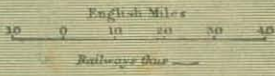 English Miles
10 0 10 20 30 40
Railways thus